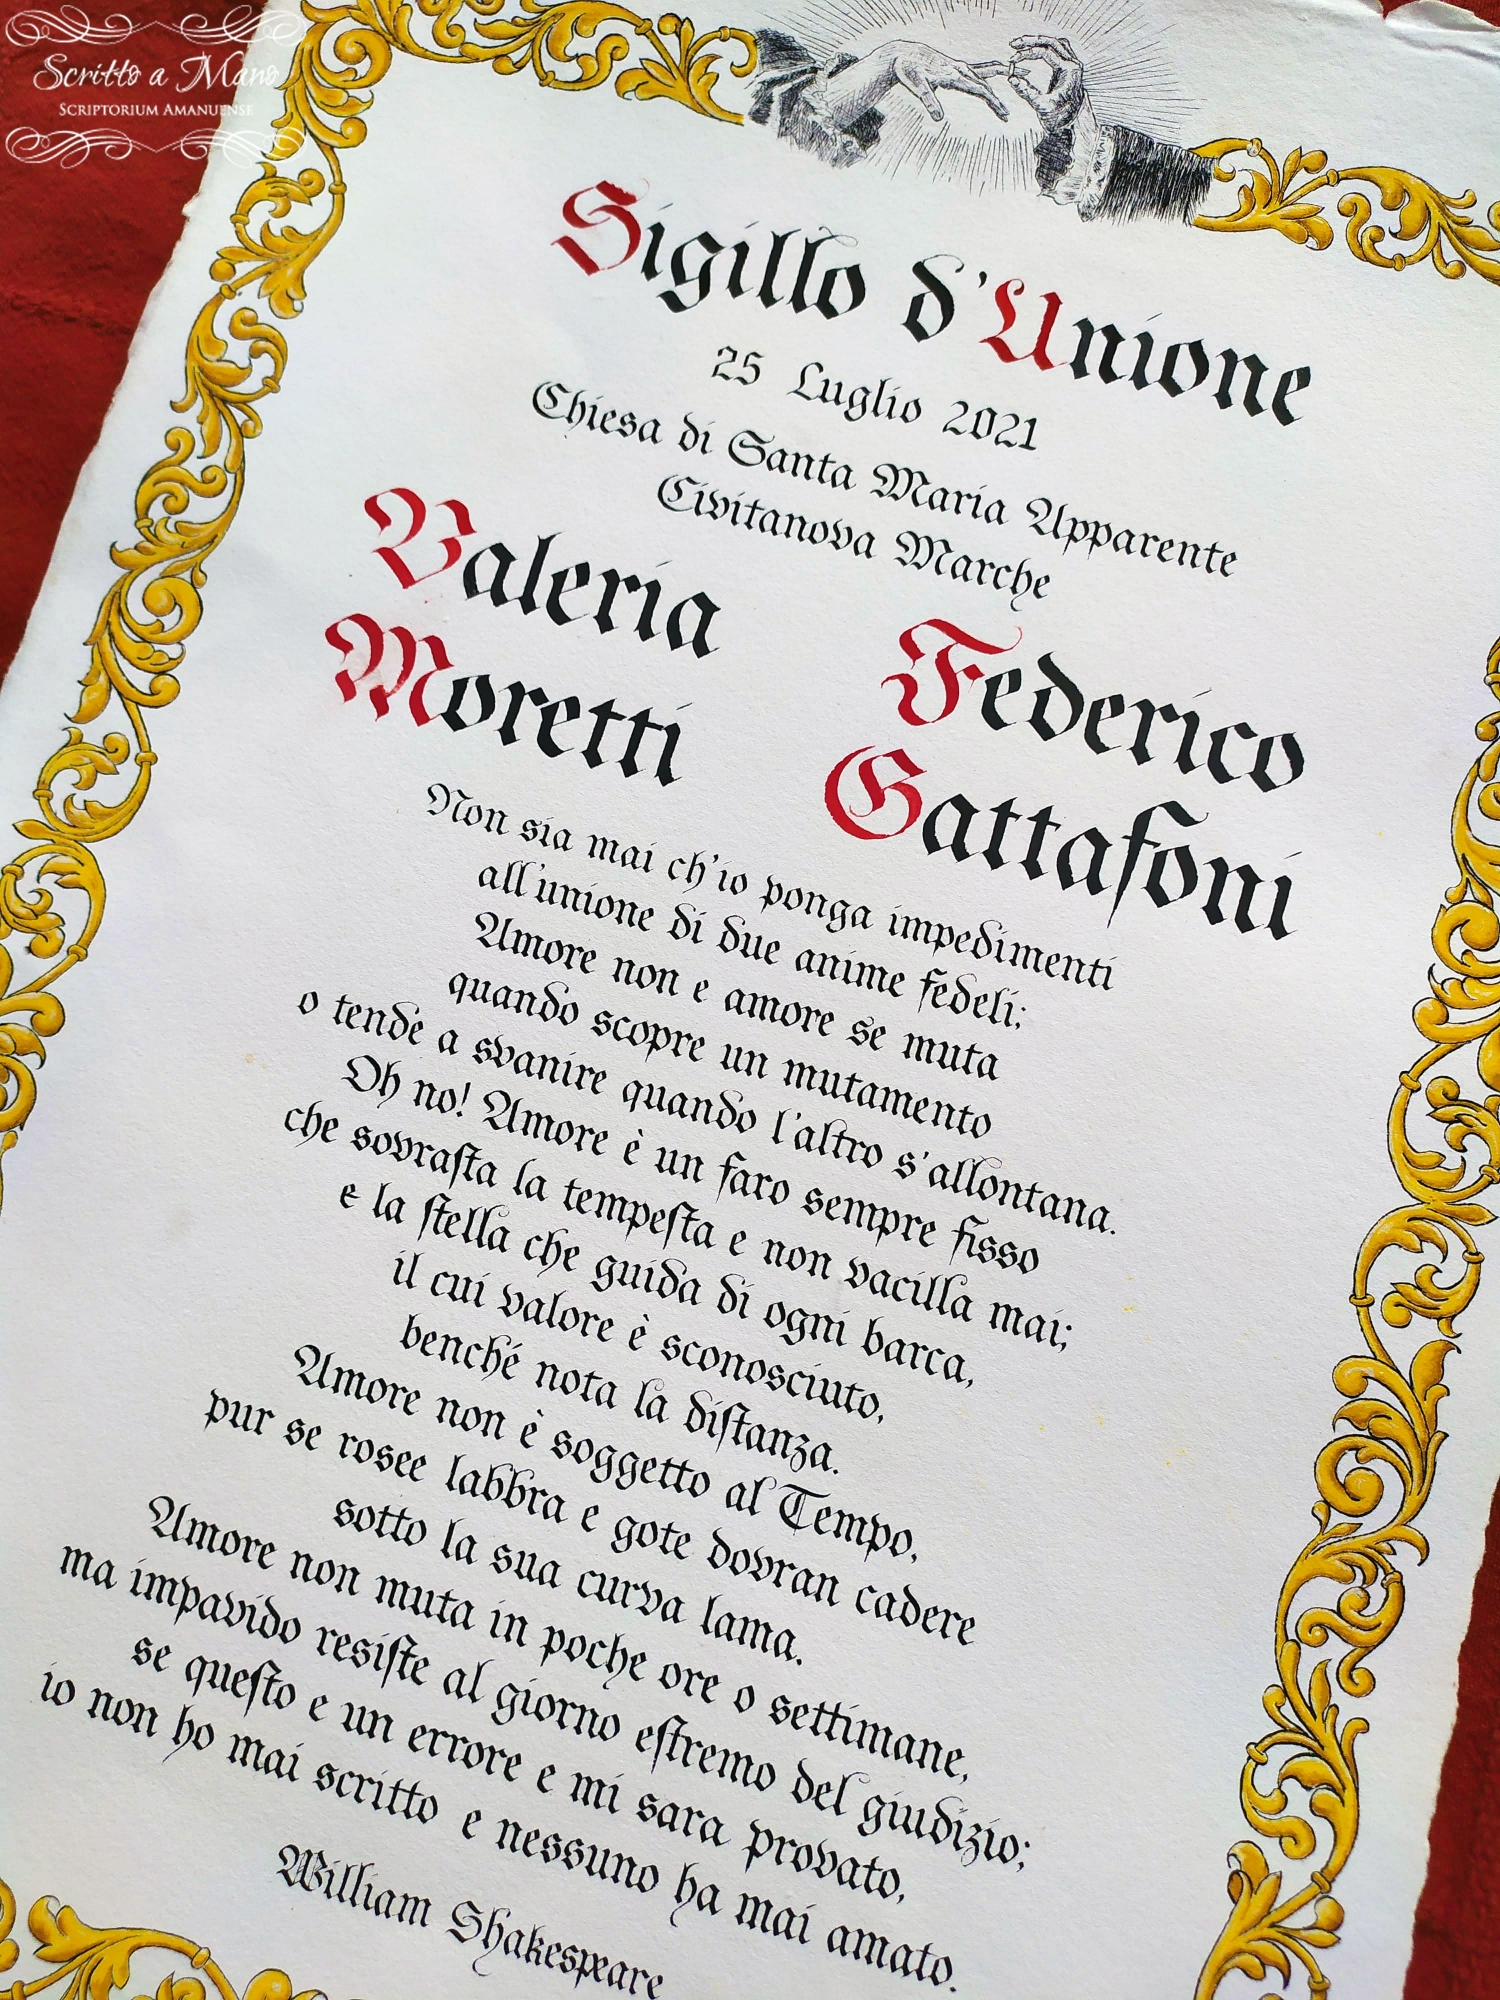 Scritto a Mano
SCRIPTORIUM AMANUENSE
Sigillo d'Unione
25 Luglio 2021
Chiesa di Santa Maria Apparente
Civitanova Marche
Valeria
Moretti
Federico
Gattafoni
Non sia mai ch'io ponga impedimenti
all'unione di due anime fedeli;
Amore non e amore se muta
quando scopre un mutamento
o tende a svanire quando l'altro s'allontana.
Oh no! Amore è un faro sempre fisso
che sovrasta la tempesta e non vacilla mai;
e la stella che guida di ogni barca,
il cui valore è sconosciuto,
benché nota la distanza.
Amore non è soggetto al Tempo,
pur se rosee labbra e gote dovran cadere
sotto la sua curva lama.
Amore non muta in poche ore o settimane,
ma impavido resiste al giorno estremo del giudizio;
se questo e un errore e mi sara provato,
io non ho mai scritto e nessuno ha mai amato.
William Shakespeare